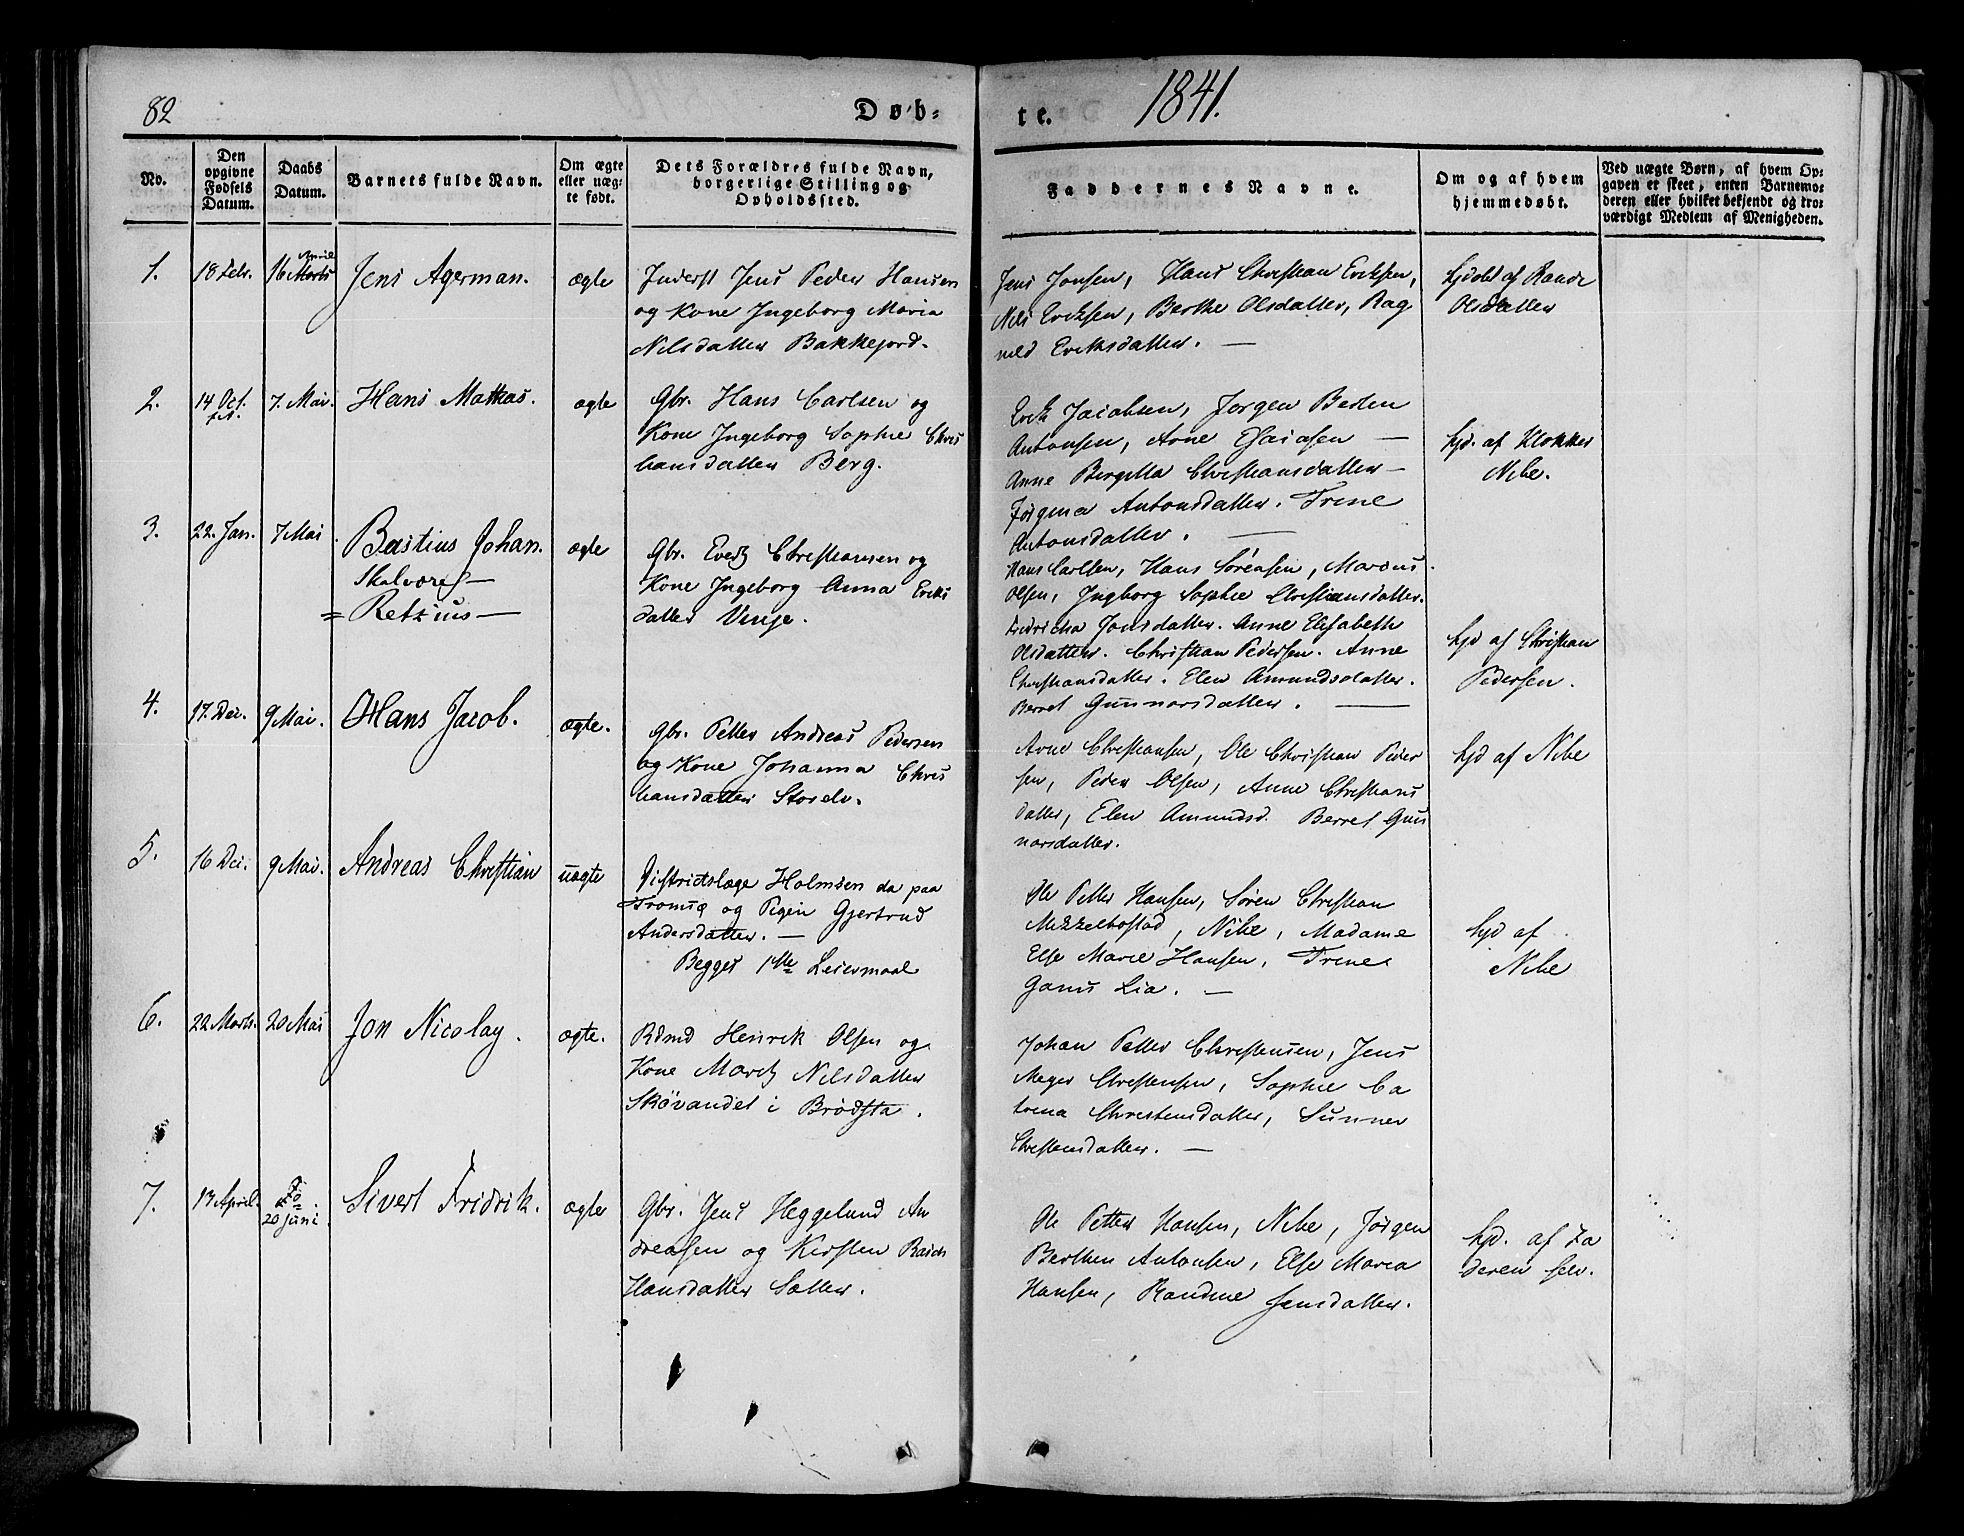 82
Døb-
te.
1841.
No.
Den
opgivne
Fødsels
Datum.
Daabs
Datum.
Barnets fulde Navn.
Om ægte
eller uæg-
te født.
Dets Forældres fulde Navn,
borgerlige Stilling og
Opholdssted.
Faddernes Navne.
Om og af hvem
hjemmedøbt.
Ved uægte Børn, af hvem Op-
gaven er skeet, enten Barnemo-
deren eller hvilket bekjendt og tro-
værdigt Medlem af Menigheden.
1.
18 Febr.
April
16 Marts
Jens Agerman.
ægte
Inderst Jens Peder Hansen
og Kone Ingeborg Maria
Nilsdatter Bakkejord.
Jens Jonsen, Hans Christian Eriksen,
Nils Eriksen, Berthe Olsdatter, Rag
nild Eriksdatter. —
hjdøbt af Rande
Olsdatter
2.
14 Oct.
7. Mai.
Hans Mathias.
ægte
Gbr. Hans Carlsen og
Kone Ingeborg Sophie Chris
tiansdatter Berg.
Erik Jacobsen, Jørgen Berten
Antonsen, Arne Esaiasen —
Anne Bergitta Christiansdatter —
Jørgina Antonsdatter. Trine
Antonsdatter. —
hjd. af Klokker
Nibe.
3.
22. Jan.
7 Mai
Bastius Johan.
Skalvore —
= Retzius —
ægte
Gbr. Evert Christiansen og
Kone Ingeborg Anna Eriks
datter Vinje.
Hans Carlsen, Hans Sørensen, Marcus
Olsen, Ingborg Sophie Christiansdatter.
Fredricha Jonsdatter. Anne Elisabeth
Olsdatter. Christian Pedersen. Anne
Christiansdatter. Elen Amundsdatter.
Berret Gunnarsdatter. —
hjd af Christian
Pedersen.
4.
17. Dec.
9 Mai.
Hans Jacob.
ægte.
Gbr. Petter Andreas Pedersen
og Kone Johanna Chris
tiansdatter Storelv.
Arne Christiansen, Ole Christian Peder
sen, Peder Olsen, Anne Christians
datter, Elen Amundsd. Berret Gun
narsdatter.
hjd af Nibe
5.
16 Dec.
9 Mai.
Andreas Christian
uægte
Districtslæge Holmsen da paa
Tromsø og Pigen Gjertrud
Andersdatter. —
Begges 1ste Leiermaal
Ole Petter Hansen, Søren Christian
Mikkelbostad, Nibe, Madame
Else Marie Hansen, Trine
Ganus Lia. —
hjd af
Nibe
6.
22 Marts.
20 Mai
Jon Nicolay.
ægte.
Rdmd Henrik Olsen og
Kone Marit Nilsdatter
Skøvandet i Brødsta.
Johan Petter Christensen, Jens
Meyer Christensen, Sophie Ca
trina Christensdatter, Sunnev
Christensdatter. —
7.
13 April.
20 juni
Sivert Fridrik.
ægte
Gbr. Jens Heggelund An
dreasen og Kirsten
Hansdatter Satter.
Ole Petter Hansen, Nibe, Jørgen
Berthen Antonsen, Else Maria
Hansen, Randine Jensdatter.
hjd. af Fa
deren selv.